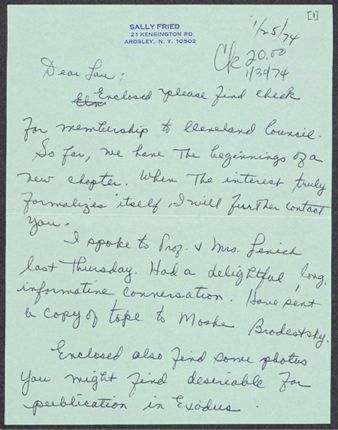 [1]
SALLY FRIED
21 KENSINGTON RD.
ARDSLEY, N. Y. 10502
1/25/74
Ck 20.00
1/30/74
Dear Lou:
Enclosed please find check
for membership to Cleveland Council.
So far, we have the beginnings of a
new chapter. When the interest truly
formalizes itself, I will further contact
you.
I spoke to Prof. & Mrs. Lerich
last Thursday. Had a delightful, long,
informative conversation. Have sent
a copy of tape to Moshe Brodestsky.
Enclosed also find some photos
you might find desireable for
publication in Exodus.